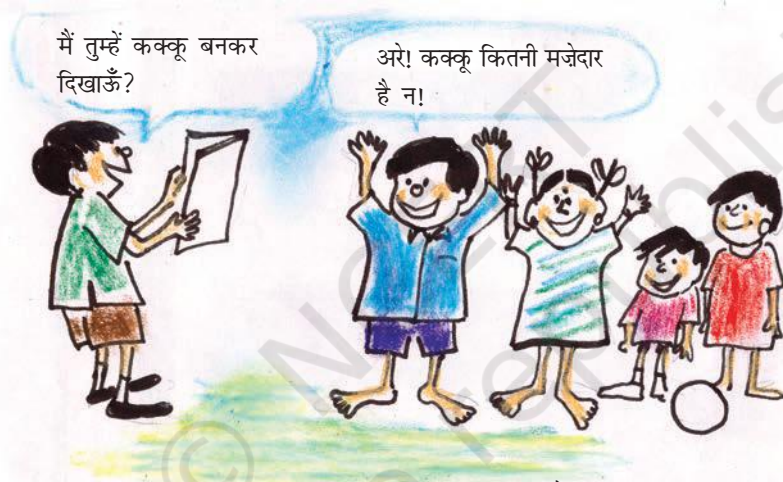 मैं तुम्हें कक्कू बनकर
दिखाऊँ?
अरे! कक्कू कितनी मज़ेदार
है न!